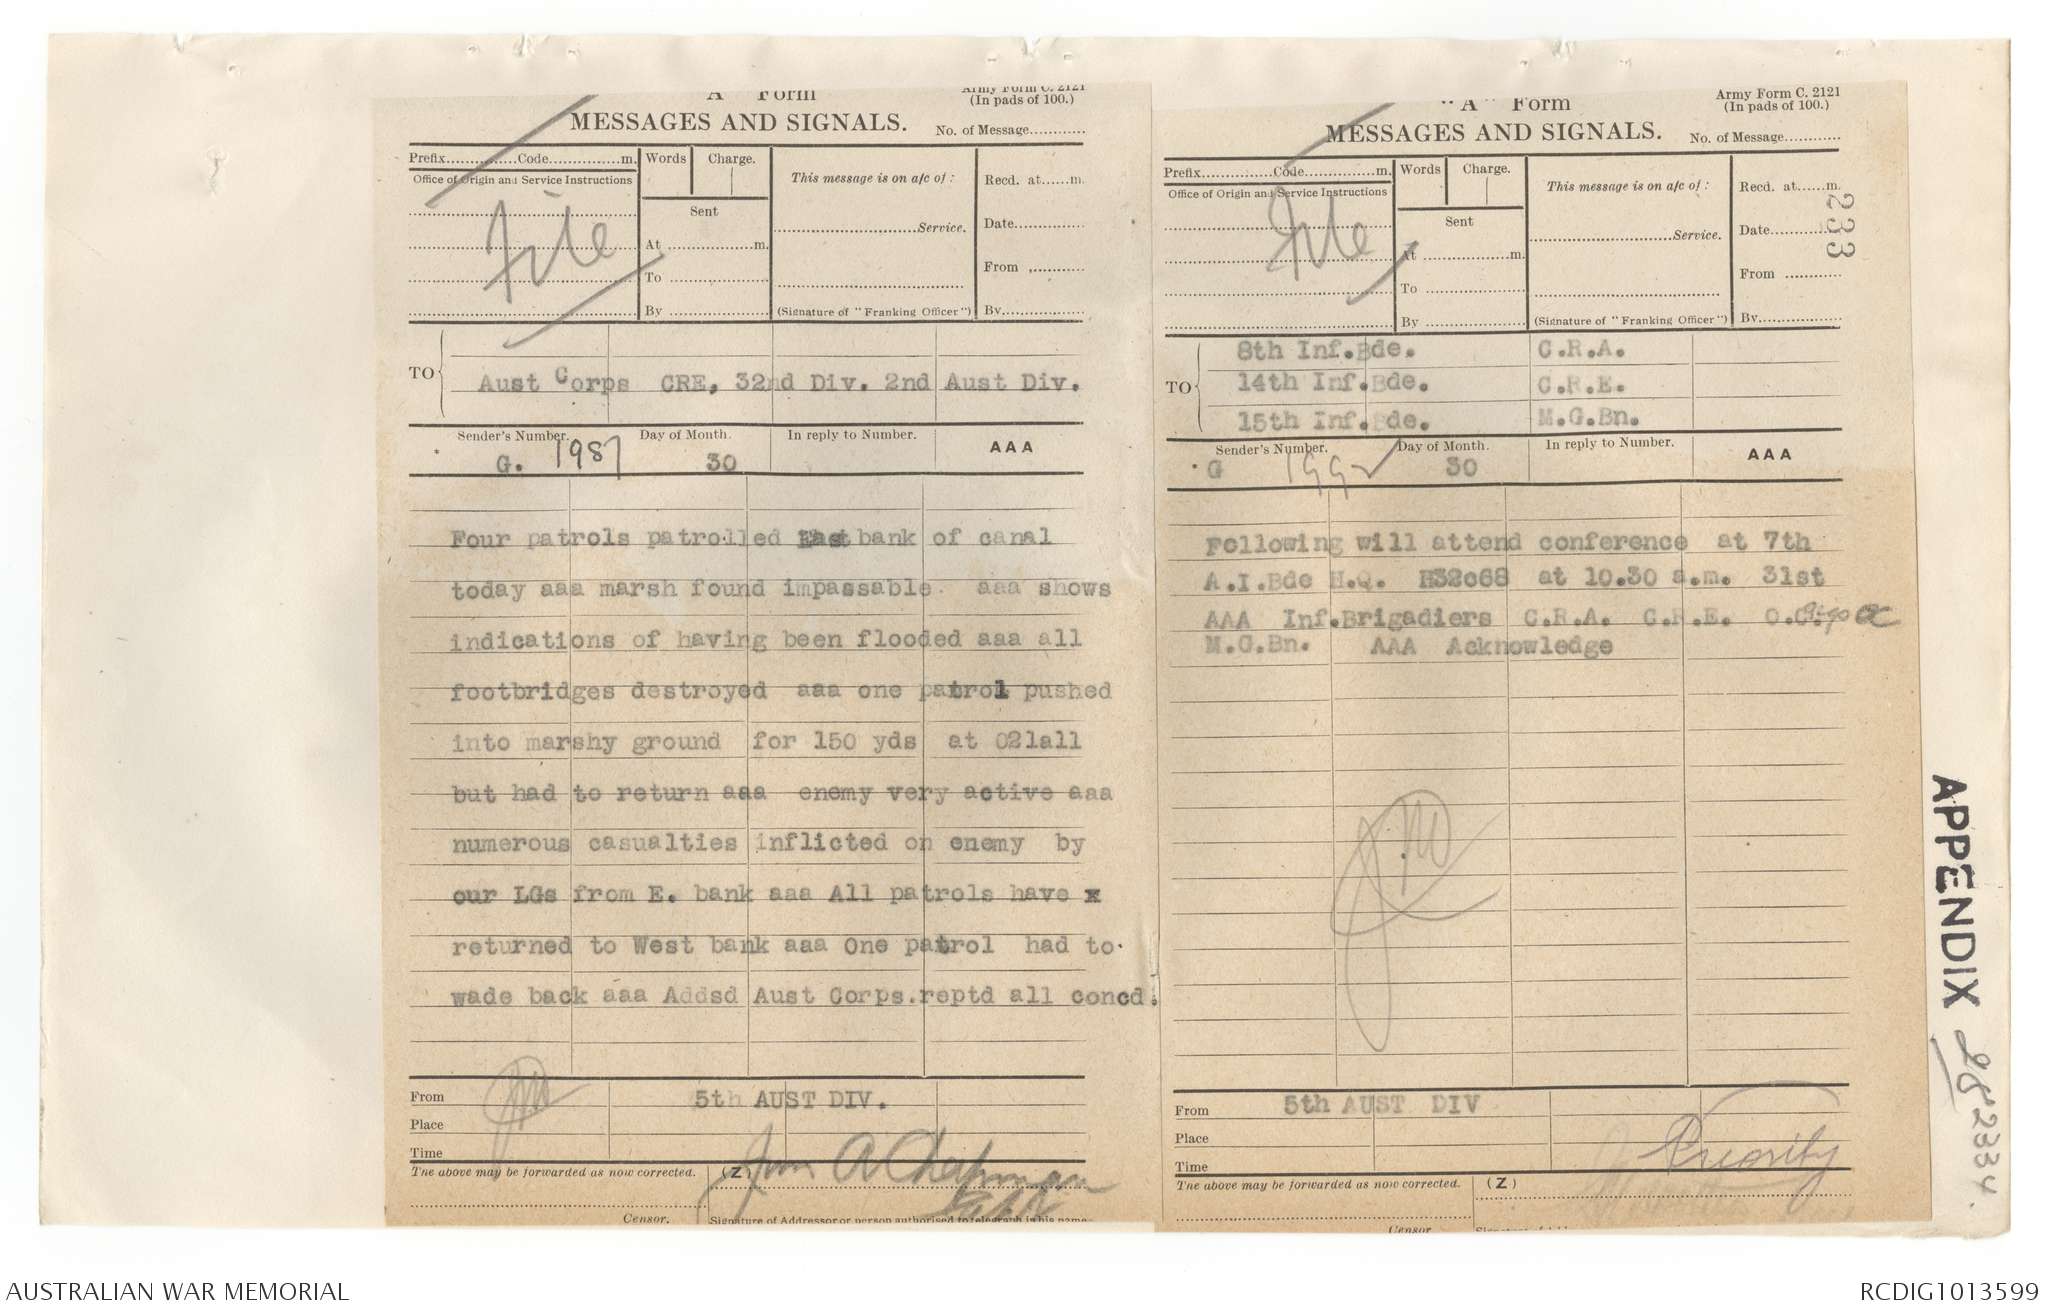 "A" Form
Army Form C. 2121
(In pads of 100.)
MESSAGES AND SIGNALS.
No. of Message............
Prefix..............Code...............m.
Words
Charge.
This message is on a/c of :
Recd. at......m.
Office of Origin and Service Instructions
File
Sent
Service.
Date...............
At ....................m.
From ............
To ....................
By ....................
(Signature of "Franking Officer")
By..................
TO
Aust Corps CRE, 32nd Div. 2nd Aust Div.
Sender's Number.
Day of Month.
In reply to Number.
AAA
G. 1987
30
Four patrols patrolled East bank of canal
today aaa marsh found impassable aaa shows
indications of having been flooded aaa all
footbridges destroyed aaa one patrol pushed
into marshy ground for 150 yds at O21a11
but had to return aaa enemy very active aaa
numerous casualties inflicted on enemy by
our LGs from E. bank aaa All patrols have x
returned to West bank aaa One patrol had to
wade back aaa Addsd Aust Corps.reptd all concd.
From
5th AUST DIV.
Place
Time
The above may be forwarded as now corrected.
(Z)
Jno A Chapman
Censor.
Signature of Addressor or person authorised to telegraph in his name
"A" Form
Army Form C. 2121
(In pads of 100.)
MESSAGES AND SIGNALS.
No. of Message............
Prefix..............Code...............m.
Words
Charge.
This message is on a/c of :
Recd. at......m.
Office of Origin and Service Instructions
File
Sent
Service.
Date...............
At ....................m.
From ............
To ....................
By ....................
(Signature of "Franking Officer")
By..................
233
TO
8th Inf.Bde.
C.R.A.
14th Inf.Bde.
C.R.E.
15th Inf.Bde.
M.G.Bn.
Sender's Number.
Day of Month.
In reply to Number.
AAA
G 1992
30
Following will attend conference at 7th
A.I.Bde H.Q. H32c68 at 10.30 a.m. 31st
AAA Inf.Brigadiers C.R.A. C.R.E. O.C.
M.G.Bn. AAA Acknowledge
From
5th AUST DIV
Place
Priority
Time
The above may be forwarded as now corrected.
(Z)
Censor.
APPENDIX 28
233
234.
AUSTRALIAN WAR MEMORIAL
RCDIG1013599